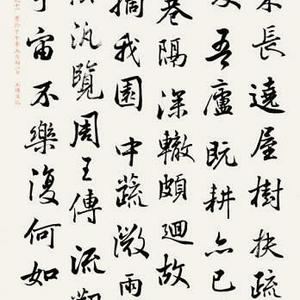 木長遶屋樹扶疏
吾廬既耕亦已
巷隔深轍頗迴故
摘我園中蔬微雨
汎覽周王傳流觀
宙不樂復何如